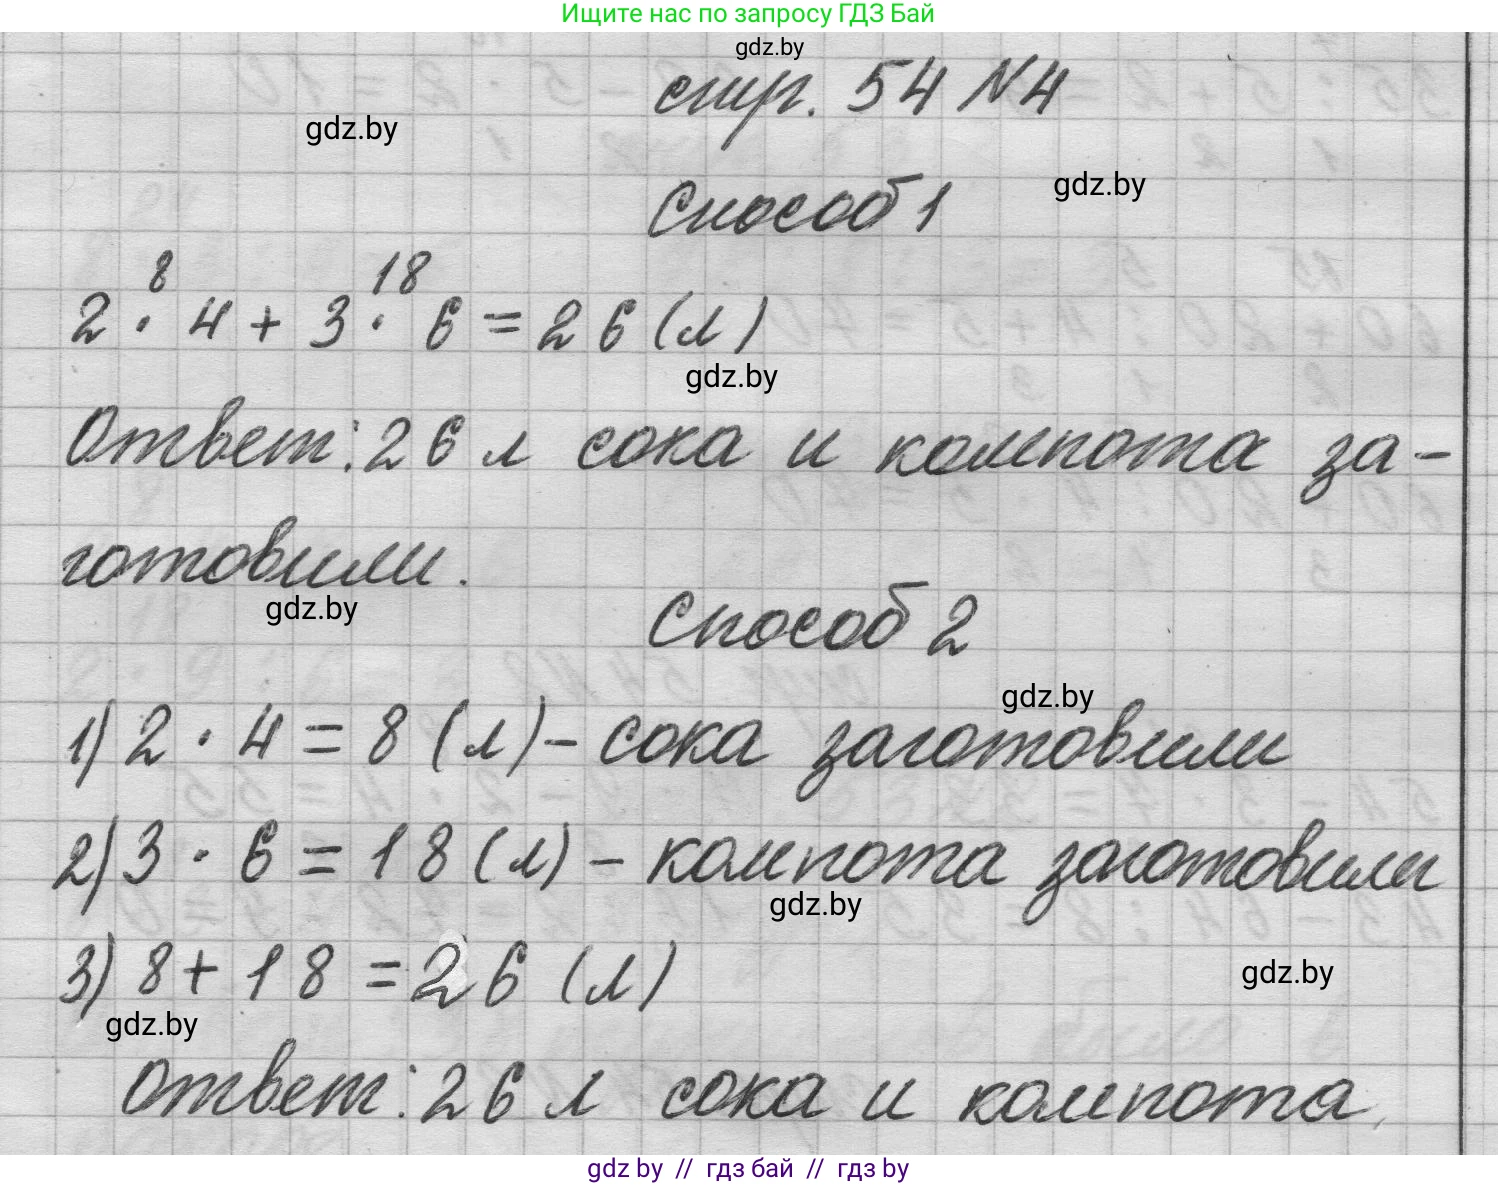 Ищите нас по запросу ГДЗ Бай
gdz.by
стр. 54 N4
gdz.by
gdz.by
Способ 1
8 18
2 · 4 + 3 · 6 = 26 (л)
gdz.by
Ответ: 26 л сока и компота за-
готовили.
gdz.by
Способ 2
gdz.by
1) 2 · 4 = 8 (л) – сока заготовили
2) 3 · 6 = 18 (л) – компота заготовили
gdz.by
3) 8 + 18 = 26 (л)
gdz.by
gdz.by
Ответ: 26 л сока и компота.
gdz by // гдз бай // гдз by